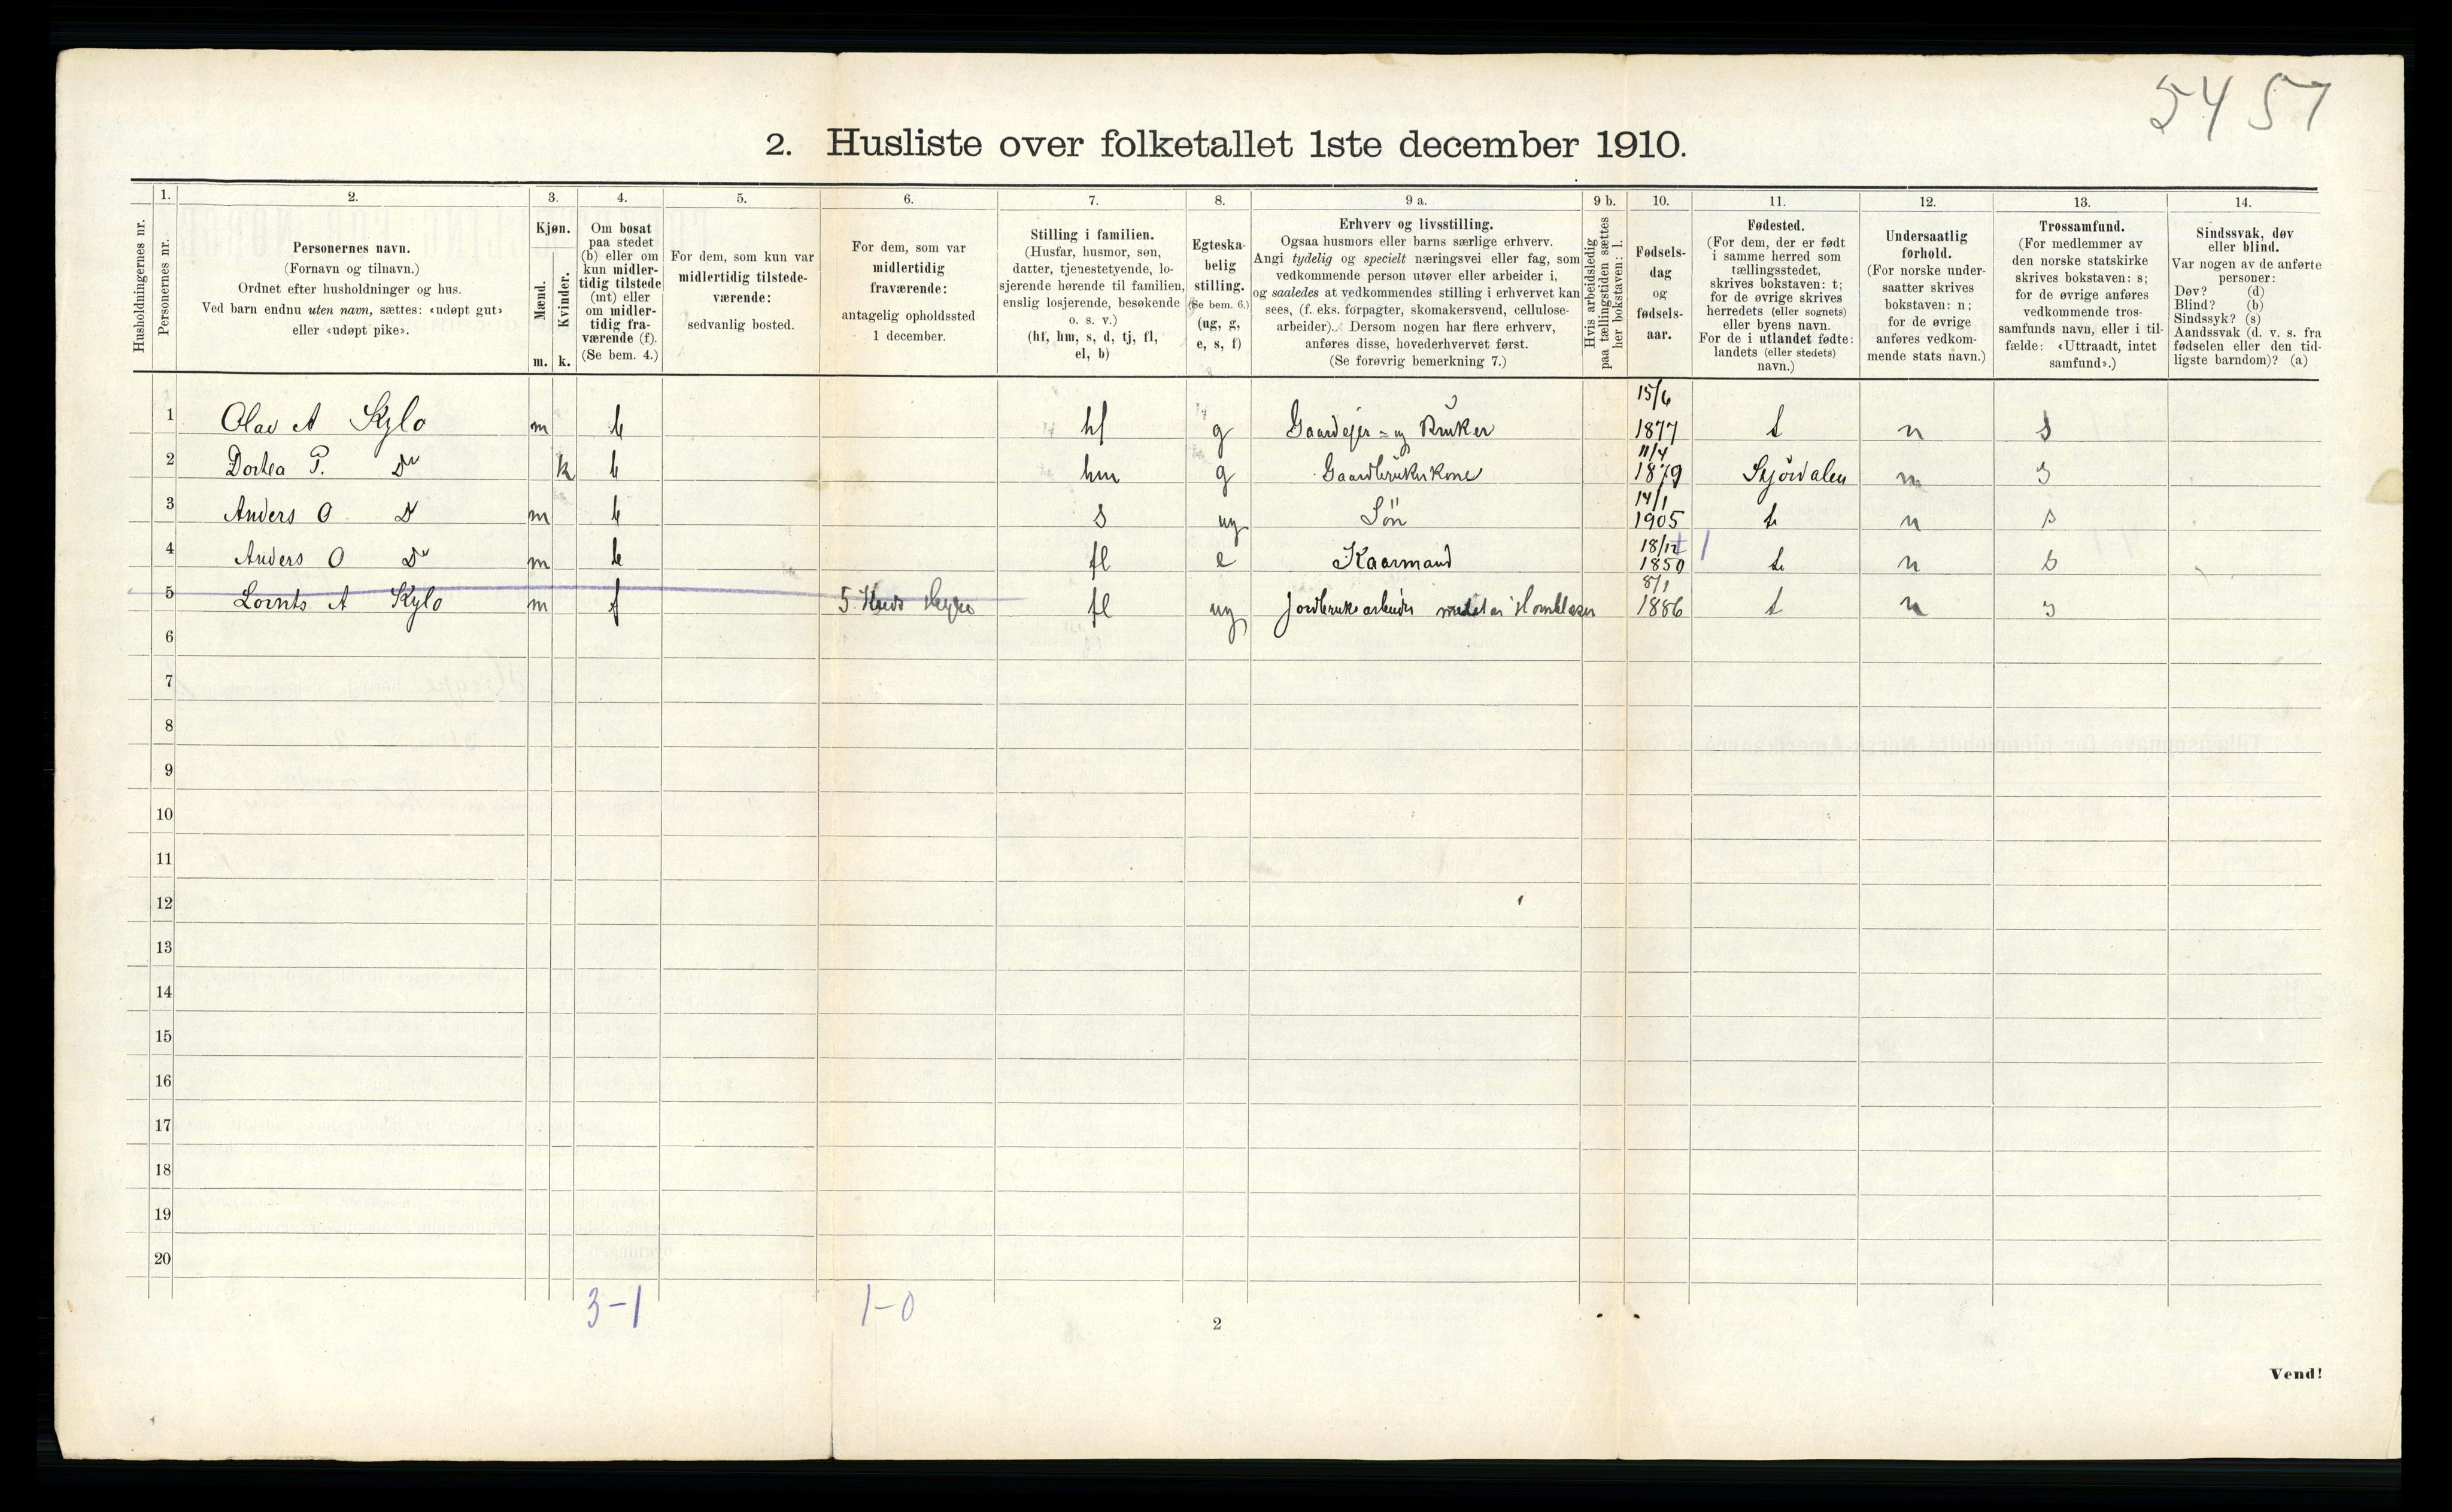 5457
2. Husliste over folketallet 1ste december 1910.
Husholdningernes nr.
1.
Personernes nr.
2.
Personernes navn.
(Fornavn og tilnavn.)
Ordnet efter husholdninger og hus.
Ved barn endnu uten navn, sættes: «udøpt gut»
eller «udøpt pike».
3.
Kjøn.
Mænd.
Kvinder.
m. k.
4.
Om bosat
paa stedet
(b) eller om
kun midler-
tidig tilstede
(mt) eller
om midler-
tidig fra-
værende (f).
(Se bem. 4.)
5.
For dem, som kun var
midlertidig tilstede-
værende:
sedvanlig bosted.
6.
For dem, som var
midlertidig
fraværende:
antagelig opholdssted
1 december.
7.
Stilling i familien.
(Husfar, husmor, søn,
datter, tjenestetyende, lo-
sjerende hørende til familien,
enslig losjerende, besøkende
o. s. v.)
(hf, hm, s, d, tj, fl,
el, b)
8.
Egteska-
belig
stilling.
(Se bem. 6.)
(ug, g,
e, s, f)
9 a.
Erhverv og livsstilling.
Ogsaa husmors eller barns særlige erhverv.
Angi tydelig og specielt næringsvei eller fag, som
vedkommende person utøver eller arbeider i,
og saaledes at vedkommendes stilling i erhvervet kan
sees, (f. eks. forpagter, skomakersvend, cellulose-
arbeider). Dersom nogen har flere erhverv,
anføres disse, hovederhvervet først.
(Se forøvrig bemerkning 7.)
9 b.
Hvis arbeidsledig
paa tællingstiden sættes
her bokstaven: l.
10.
Fødsels-
dag
og
fødsels-
aar.
11.
Fødested.
(For dem, der er født
i samme herred som
tællingsstedet,
skrives bokstaven: t;
for de øvrige skrives
herredets (eller sognets)
eller byens navn.
For de i utlandet fødte:
landets (eller stedets)
navn.)
12.
Undersaatlig
forhold.
(For norske under-
saatter skrives
bokstaven: n;
for de øvrige
anføres vedkom-
mende stats navn.)
13.
Trossamfund.
(For medlemmer av
den norske statskirke
skrives bokstaven: s;
for de øvrige anføres
vedkommende tros-
samfunds navn, eller i til-
fælde: «Uttraadt, intet
samfund».)
14.
Sindssvak, døv
eller blind.
Var nogen av de anførte
personer:
Døv? (d)
Blind? (b)
Sindssyk? (s)
Aandssvak (d. v. s. fra
fødselen eller den tid-
ligste barndom)? (a)
1 Olav A Kylo m b hf g Gaardejer = og Bruker 15/6 1877 t n s
2 Dortea P. Do k b hm g Gaardbrukerkone 11/4 1879 Stjördalen n s
3 Anders O Do m b s ug Sön 14/1 1905 t n s
4 Anders O Do m b fl e Kaarmand 18/12 1850 t n s
5 Lornts A Kylo m f 5. Kreds fl ug Jordbruksarbeider Hornblaser 8/1 1886 t n s
6
7
8
9
10
11
12
13
14
15
16
17
18
19
20
3-1 1-0
2
Vend!